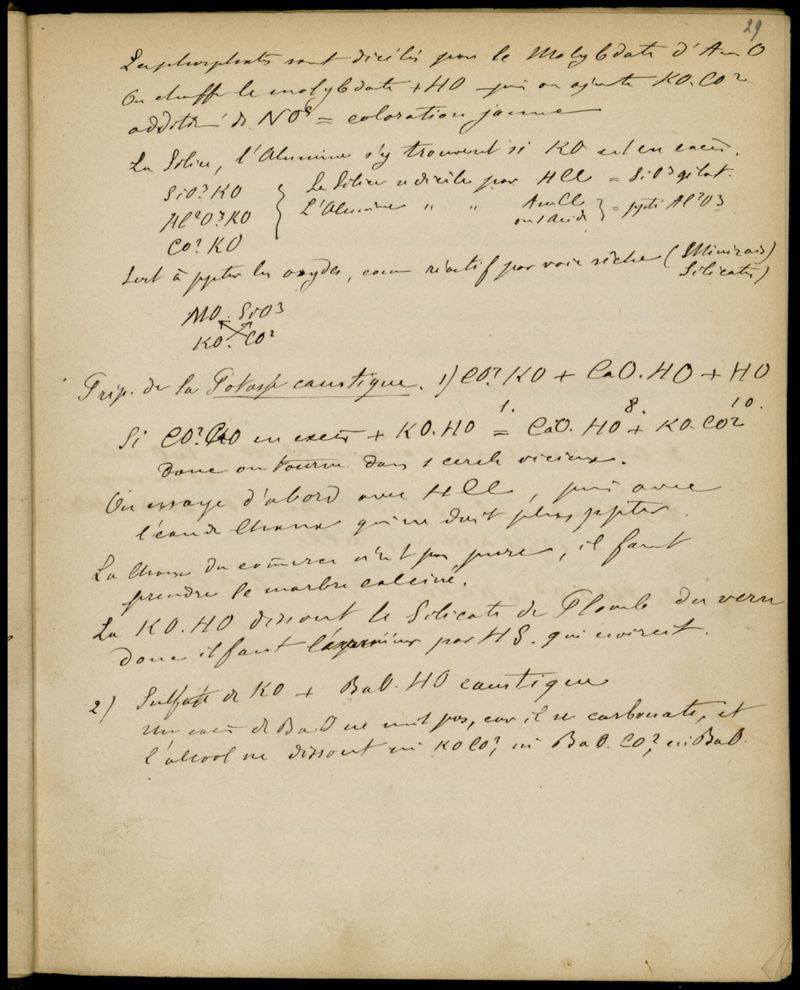 29
Les phosphates sont décélés par le Molybdate d'AmO
On chauffe le molybdate + HO puis on ajoute KO.CO²
addition de NO⁵ = coloration jaune
La Silice, l'Alumine s'y trouvent si KO est en excès.
SiO³.KO { La Silice se décèle par HCl = SiO³ gélat.
Al²O³.KO { L'Alumine " " AmCl ou 1 acide } = ppté Al²O³
CO².KO
Sert à ppter les oxydes, comme réactif par voie sèche (Minerais)
Silicates)
MO.SiO³
KO.CO²
Prép. de la Potasse caustique. 1) CO².KO + CaO.HO + HO
Si CO².KO en excès + KO.HO = CaO.HO + KO.CO²
1. 8. 10.
donc on tourne dans 1 cercle vicieux.
On essaye d'abord avec HCl, puis avec
l'eau de Chaux qui ne doit plus ppter.
La Chaux du comerce n'est pas pure, il faut
prendre le marbre calciné.
La KO.HO dissout le Silicate de Plomb du verre
donc il faut l' par HS. qui noircit.
2) Sulfate de KO + BaO.HO caustique
un excès de BaO ne nuit pas, car il se carbonate, et
l'alcool ne dissout ni KOCO², ni BaO.CO², ni BaO.